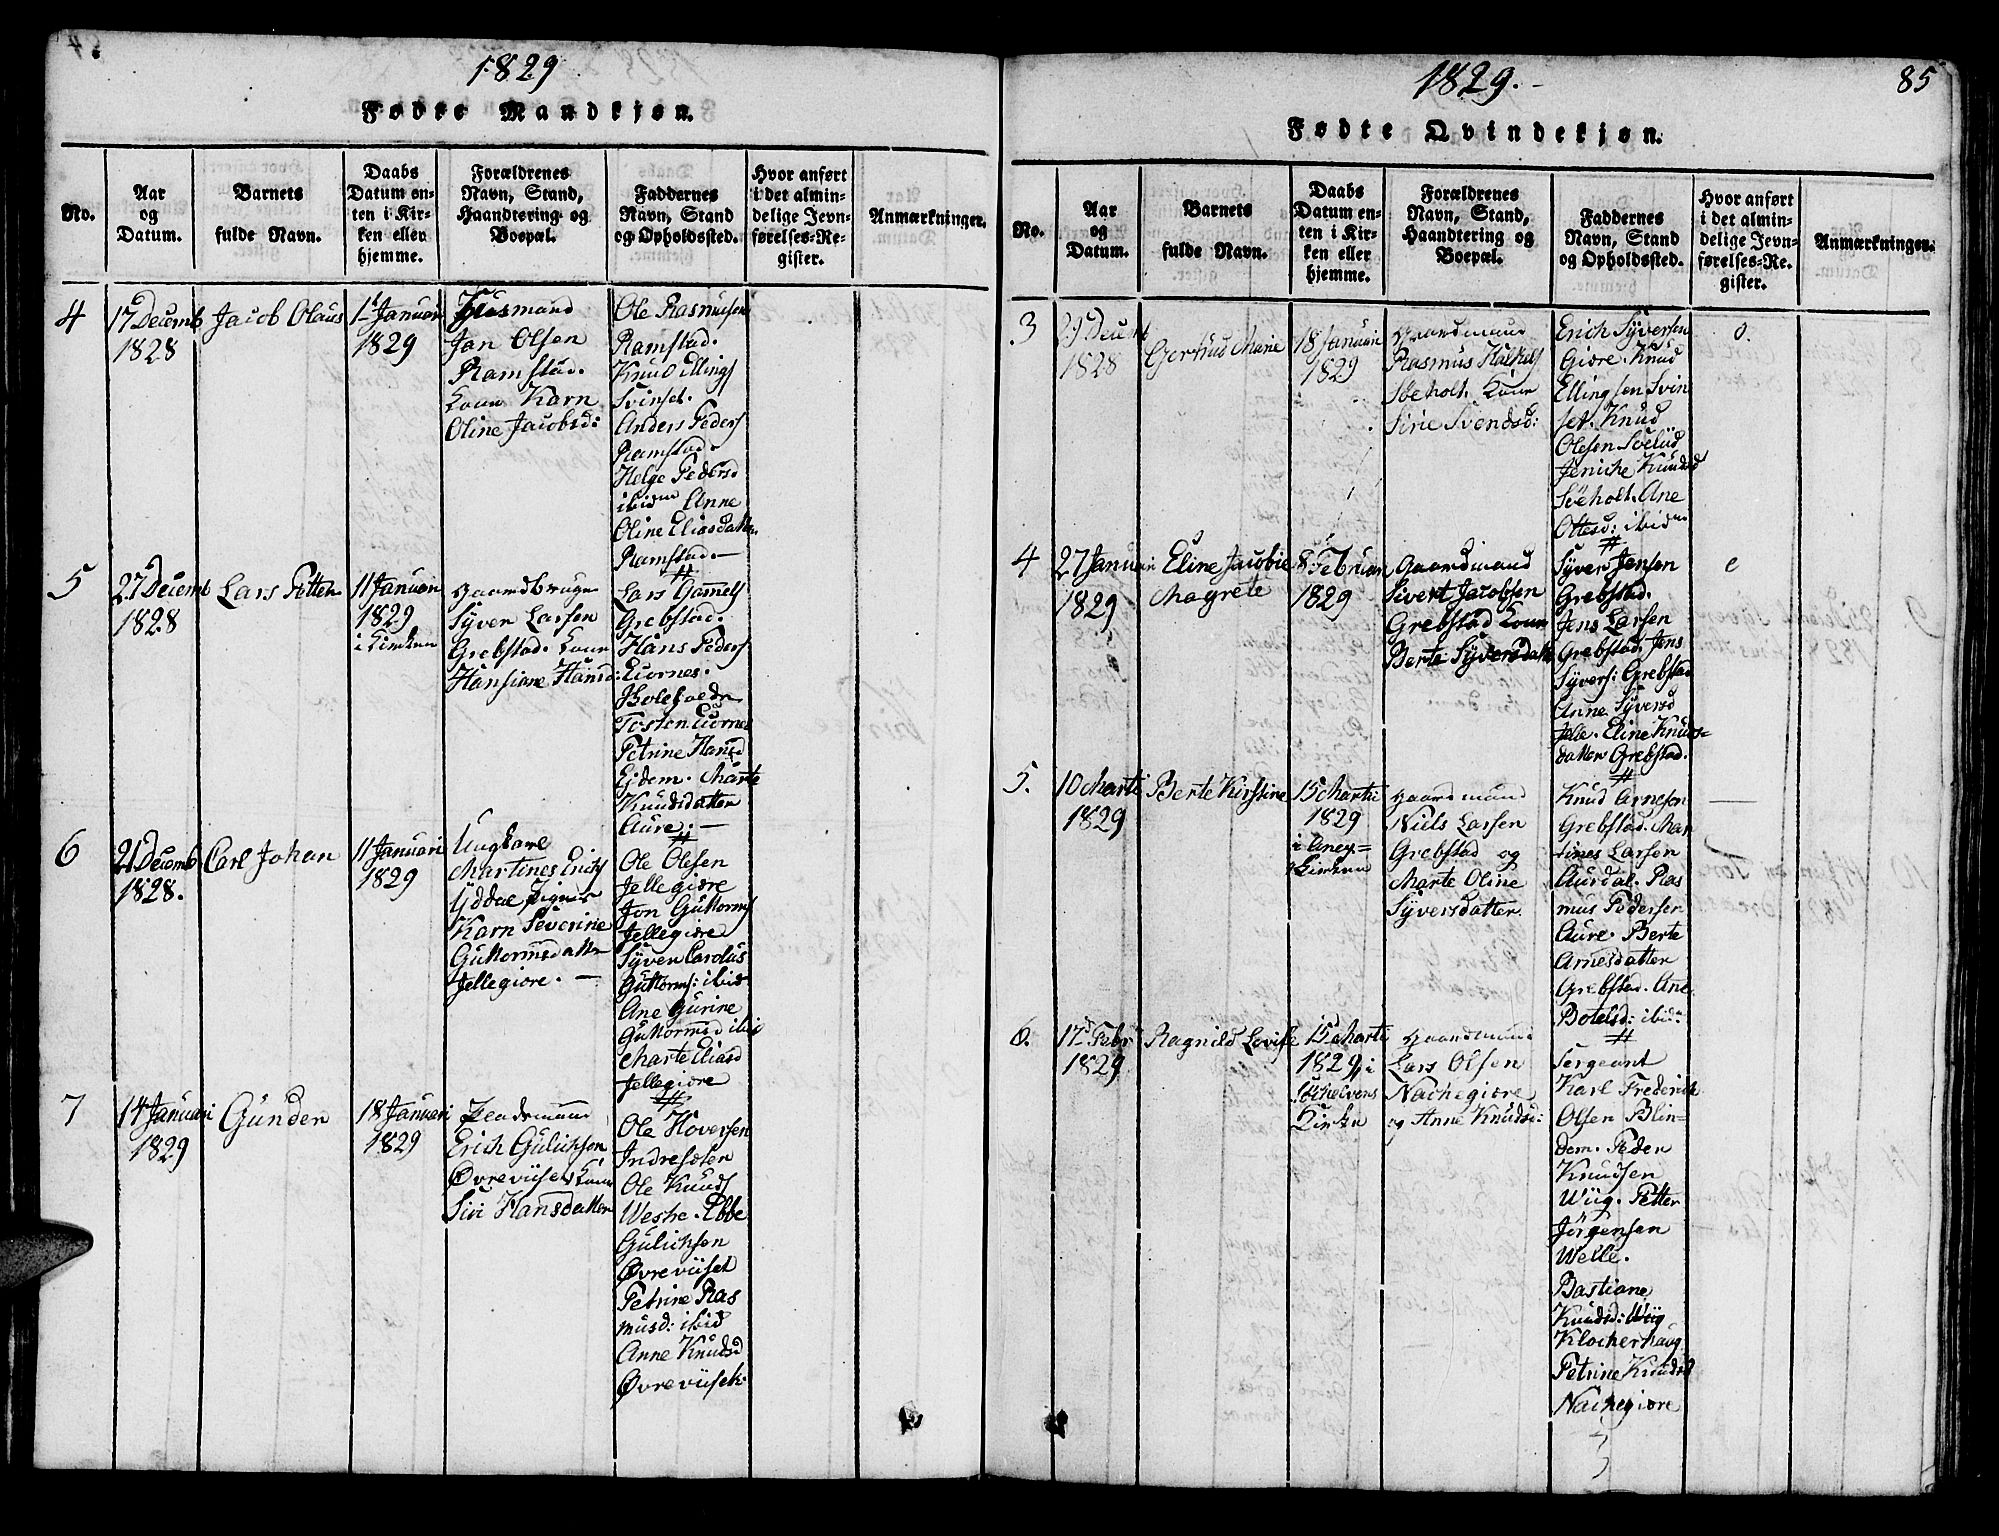 1829
Fødte Mandkjøn.
No.
Aar
og
Datum.
Barnets
fulde Navn.
Daabs
Datum en-
ten i Kir-
ken eller
hjemme.
Forældrenes
Navn, Stand,
Haandtering og
Boepæl.
Faddernes
Navn, Stand
og Opholdssted.
Hvor anført
i det almin-
delige Jevn-
førelses-Re-
gister.
Anmærkninger.
4
17 Decemb
1828
Jacob Olaus
1 Januari
1829
Husmand
Jan Olsen
Ramstad.
Kone Karn
Oline Jacobsd:
Ole Rasmusen
Ramstad.
Knud Ellings
Svinset.
Anders Peders
Ramstad.
Helge Pedersd
ibid Anne
Oline Eliasdatter
Ramstad. —
5
27 Decemb
1828
Lars Petter
11 Januari
1829
i Kirken
Gaardbruger
Syver Larsen
Grebstad. Kone
Hansiane Hansd:
Lars Gamels
Grebstad.
Hans Peders
Eiornes.
Tosten Eiornes
Petrine Hansd
Ejdem. Marte
Knudsdatter
Aure: —
6
21 Decemb
1828.
Carl Johan
11 Januari
1829
Ungkare
Martines Erichs
Yddal Piger
Karn Severine
Guttormsdatter
Jellegiore. —
Ole Olesen
Jellegiøre
Jon Guttorms
Jellegiøre
Syver Carolus
Guttorms: ibid
Ane Gurine
Guttormsd ibid
Marte Eliasd
Jellegiøre
7
14 Januari
1829
Gunder
18 Januari
1829
Erich Gulichsen
Øvreviiset Kone
Sivi Hansdatter
Ole Hoversen
Indresolen
Ole Knuds
Westre. Ebbe
Gulichsen
Øvreviiset
Petrine Ras
musd: ibid
Anne Knudsd
Øvreviiset.
1829.-
85
Fødte Qvindekjøn.
No.
Aar
og
Datum.
Barnets
fulde Navn.
Daabs
Datum en-
ten i Kir-
ken eller
hjemme.
Forældrenes
Navn, Stand,
Haandtering og
Boepæl.
Faddernes
Navn, Stand
og Opholdssted.
Hvor anført
i det almin-
delige Jevn-
førelses-Re-
gister.
Anmærkninger.
3
29 Decemb
1828
Gertrud Marie
18 Januari
1829
Gaardmand
Rasmus
Søeholt. Kone
Sirie Svendsd:
Erich Syversen
Giøre. Knud
Ellingsen Svin
set. Knud
Olesen Svelud
Jeniche Knudsd
Søeholt. Ane
Ottesd: ibid
o.
4
27 Januari
1829
Eline Jacobie
Magrete
8 Februari
1829
Gaardmand
Sivert Jacobsen
Grebstad Kone
Berte Syversdatt
Syver Jensen
Grebstad.
Jens Larsen
Grebstad. Jens
Syvers: Grebstad
Anne Syversd
Jelle. Eline Knuds-
datter Grebstad.
e
5.
10 Marti
1829
Berte Kirstine
15 Marti
1829
i Anex=
Kirken
Gaardmand
Niels Larsen
Grebstad og
Marte Oline
Syversdatter
Knud Arnesen
Grebstad. Mar
tines Larsen
Aurdal. Ras
mus Pedersen
Aure. Berte
Arnesdatter
Grebstad. Ane
Botelsd: ibid:
6.
17 Febr
1829
Ragnild Lovise
15 Marti
1829 i
Kirken
Gaardmand
Lars Olsen
Nachegiøre
og Anne Knudsd:
Sergeant
Karl Frederich
Olsen Blin-
dem. Peder
Knudsen
Wiig. Petter
Jørgensen
Welle.
Bastiane
Knudsd: Wiig
Klocherhaug
Petrine Knudsd
Nachegiøre